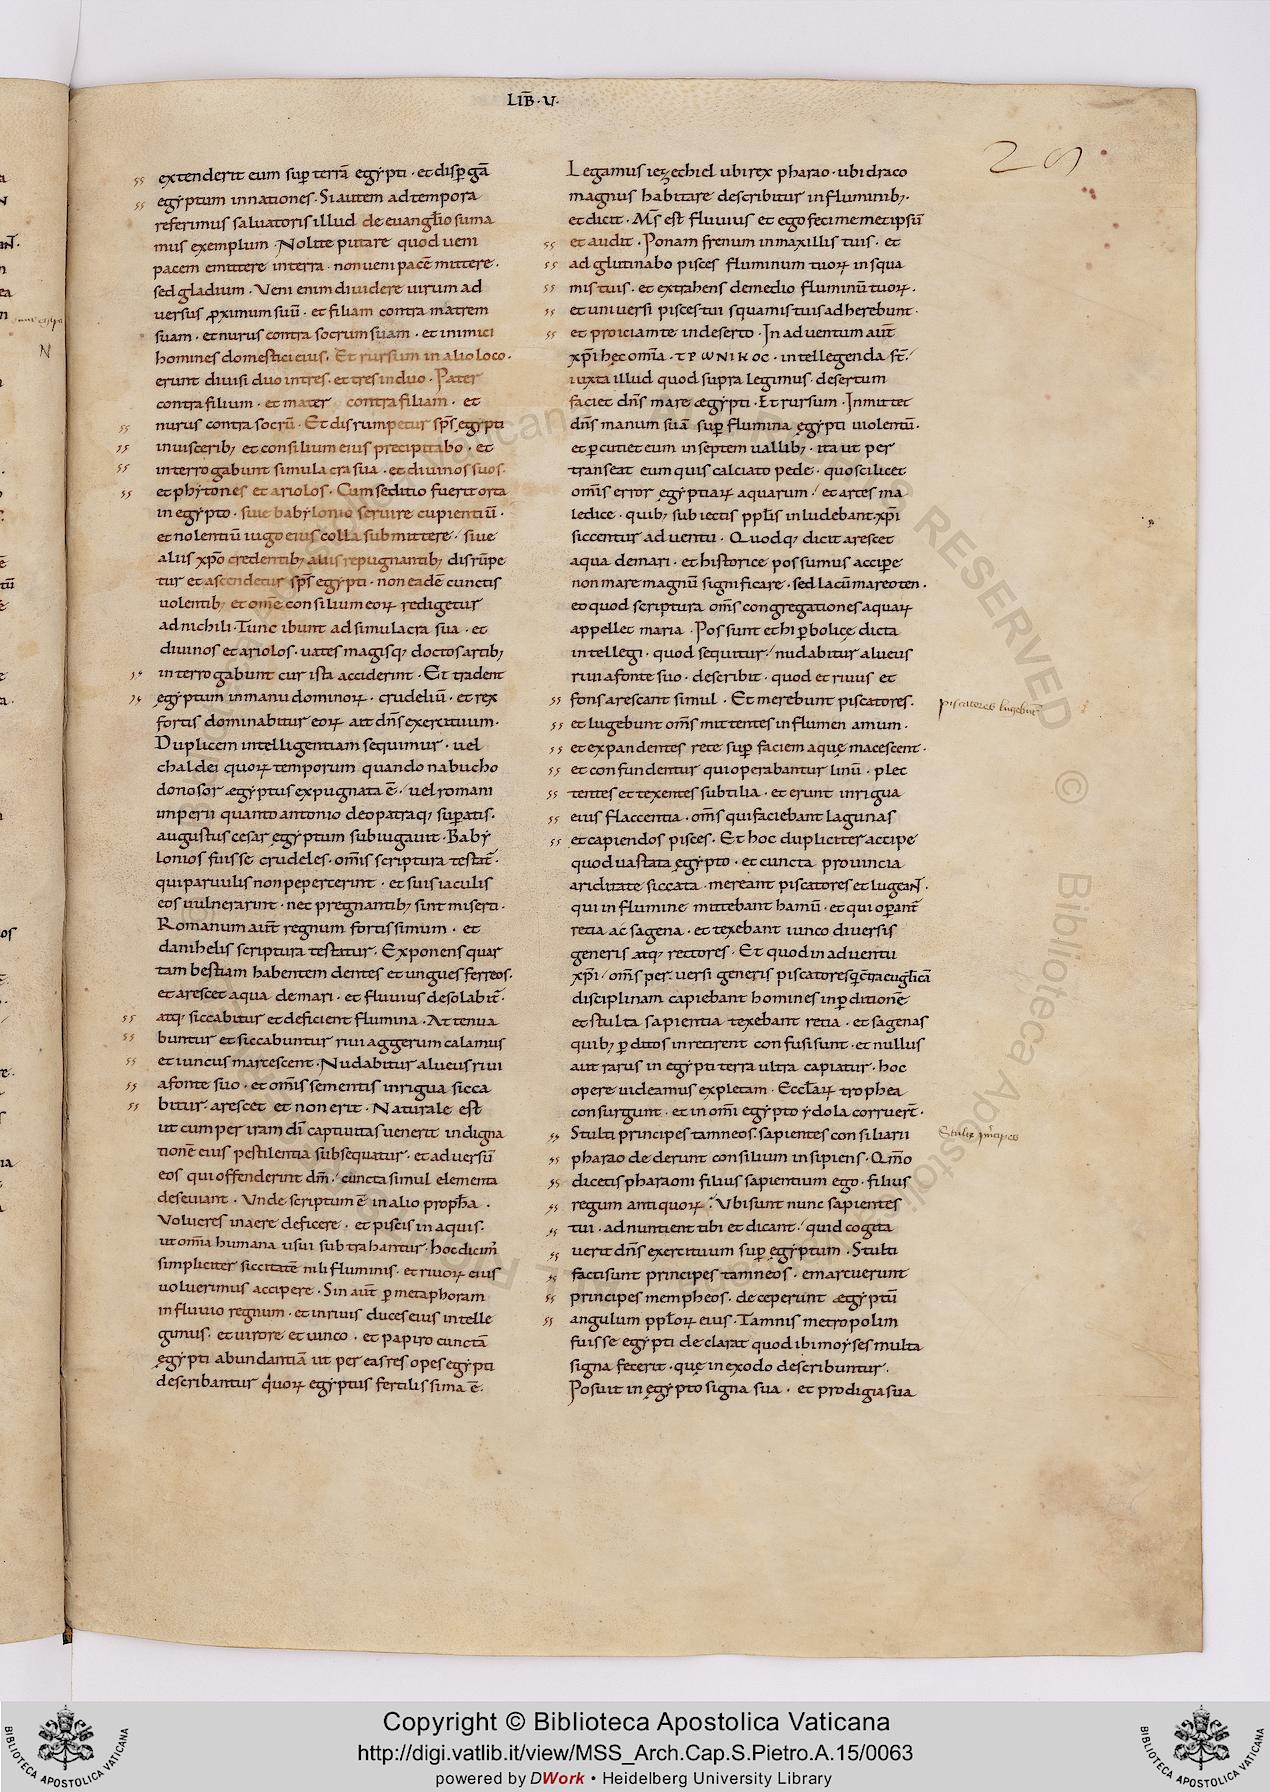 LIB̄·V·
29
extenderit eum sup terrā egypti · et dispgā
egyptum in nationes. Si autem ad tempora
referimus saluatoris illud de euanglio suma
mus exemplum · Nolite putare quod ueni
pacem emittere in terra · non ueni pacē mittere ·
sed gladium · Veni enim diuidere uirum ad
uersus pximum suū · et filiam contra matrem
suam · et nurus contra socrum suam · et inimici
homines domestici eius. Et rursum in alio loco ·
erunt diuisi duo in tres · et tres in duo · Pater
contra filium · et mater contra filiam · et
nurus contra socrū · Et disrumpetur sps̄ egypti
in uisceribꝫ et consilium eius precipitabo · et
interrogabunt simulacra sua · et diuinos suos ·
et phytones et ariolos · Cum seditio fuerit orta
in egypto · siue babylonio seruire cupientiū ·
et nolentiū iugo eius colla submittere · siue
aliis xpo credentibꝫ aliis repugnantibꝫ disrūpe
tur et ascendetur sps̄ egypti · non eadē cunctis
uolentibꝫ et omē consilium eoꝝ redigetur
ad nichili · Tunc ibunt ad simulacra sua · et
diuinos et ariolos · uates magisqꝫ doctos artibꝫ
interrogabunt cur ista acciderint · Et tradent
ęgyptum in manu dominoꝝ · crudeliū · et rex
fortis dominabitur eoꝝ ait dn̄s exercituum ·
Duplicem intelligentiam sequimur · uel
chaldei quoꝝ temporum quando nabucho
donosor ęgyptus expugnata ē · uel romani
imperii quanto antonio cleopatraqꝫ supatis ·
augustus cesar ęgyptum subiugauit · Baby
lonios fuisse crudeles · omīs scriptura testat̄ ·
qui paruulis non pepercerint · et suis iaculis
eos uulnerarint · nec pregnantibꝫ sint miserti ·
Romanum aut̄ regnum fortissimum · et
danihelis scriptura testatur · Exponens quar
tam bestiam habentem dentes et ungues ferreos ·
et arescet aqua de mari · et fluuius desolabit̄ ·
atqꝫ siccabitur et deficient flumina · Attenua
buntur et siccabuntur riui aggerum calamus
et iuncus marcescent · Nudabitur alueus riui
a fonte suo · et omīs sementis inrigua sicca
bitur · arescet et non erit · Naturale est
ut cum per iram dī captiuitas uenerit indigna
tionē eius pestilentia subsequatur · et aduersū
eos qui offenderint dm̄ · cuncta simul elementa
deseuiant · Vnde scriptum ē in alio propha ·
Volucres in aere deficere · et piscis in aquis ·
ut omīa humana usui subtrahantur · hoc dicim̄
simpliciter siccitatē nili fluminis · et riuoꝝ eius
uoluerimus accipere · Sin aut̄ p metaphoram
in fluuio regnum · et in riuis duces eius intelle
gimus · et uirore et iunco · et papiro cunctā
ęgypti abundantiā ut per eas res opes egypti
describantur quoꝝ egyptus fertilissima ē ·
Legamus iezechiel ubi rex pharao · ubi draco
magnus habitare describitur in fluminibꝫ ·
et dicit · Ms̄ est fluuius et ego feci memetipsū
et audit · Ponam frenum in maxillis tuis · et
adglutinabo pisces fluminum tuoꝝ in squa
mis tuis · et extrahens de medio fluminū tuoꝝ ·
et uniuersi pisces tui squamis tuis adherebunt ·
et proiciam te in deserto · In aduentum aut̄
xpi hęc omīa · ΤΡΩΝΙΚΟC · intellegenda st̄
iuxta illud quod supra legimus · desertum
faciet dn̄s mare ægypti · Et rursum · Inmittet
dn̄s manum suā sup flumina ęgypti uiolentū ·
et pcutiet eum in septem uallibꝫ · ita ut per
transeat eum quis calciato pede · quo scilicet
omīs error ęgyptiaꝝ aquarum · et artes ma
ledice · quibꝫ subiectis ppl̄is inludebant · xpi
siccentur aduentu · Quodqꝫ dicit arescet
aqua de mari · et historice possumus accipe
non mare magnū significare · sed lacū mareoten ·
eo quod scriptura oms̄ congregationes aquaꝝ
appellet maria · Possunt et hipbolicę dicta
intellegi · quod sequitur · nudabitur alueus
riui a fonte suo · describit · quod et riuus et
fons arescant simul · Et merebunt piscatores ·
et lugebunt oms̄ mittentes in flumen amum ·
et expandentes rete sup faciem aquę macescent ·
et confundentur qui operabantur linū · plec
tentes et texentes subtilia · et erunt inrigua
eius flaccentia · oms̄ qui faciebant lagunas
et capiendos pisces · Et hoc dupliciter accipe
quod uastata ęgypto · et cuncta prouincia
ariditate siccata · mereant piscatores et lugeant ·
qui in flumine mittebant hamū · et qui opant̄
retia ac sagena · et texebant iunco diuersis
generis atqꝫ rectores · Et quod in aduentu
xpi · oms̄ peruersi generis piscatores qui contra euglicā
disciplinam capiebant homines in pditionē
et stulta sapientia texebant retia · et sagenas
quibꝫ pditos inretirent confusi sunt · et nullus
aut rarus in egypti terra ultra capiatur · hoc
opere uideamus expletam · Eccl̄aꝝ trophea
consurgunt · et in omī egypto ydola corruert̄ ·
Stulti principes tamneos · sapientes consiliarii
pharao dederunt consilium insipiens · Qmō
dicetis pharaoni filius sapientium ego · filius
regum antiquoꝝ · Vbi sunt nunc sapientes
tui · adnuntient tibi et dicant · quid cogita
uerit dn̄s exercituum sup ęgyptum · Stulti
facti sunt principes tamneos · emarcuerunt
principes mempheos · deceperunt ægyptū
angulum ppl̄oꝝ eius · Tamnis metropolim
fuisse egypti declarat quod ibi moyses multa
signa fecerit · quę in exodo describuntur ·
Posuit in ęgypto signa sua · et prodigia sua
piscatores lugebunt
Stulti principes
Copyright © Biblioteca Apostolica Vaticana
http://digi.vatlib.it/view/MSS_Arch.Cap.S.Pietro.A.15/0063
powered by DWork • Heidelberg University Library
BIBLIOTECA APOSTOLICA VATICANA
BIBLIOTECA APOSTOLICA VATICANA